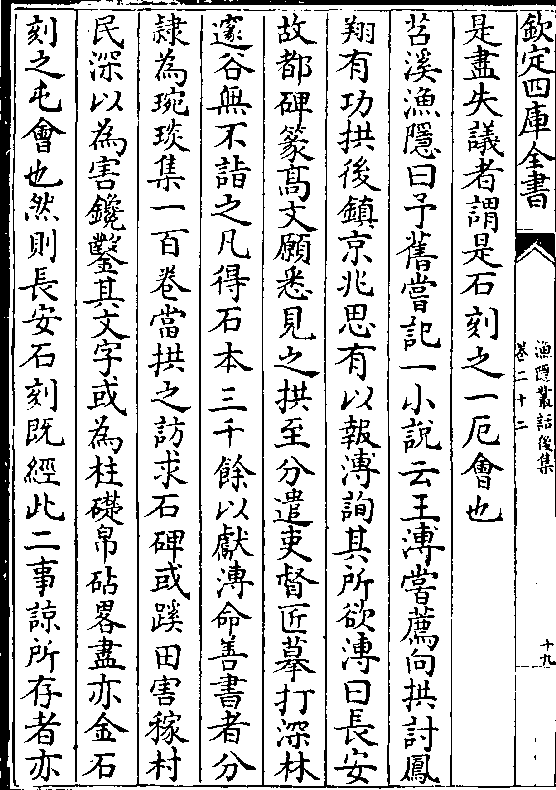 欽定四庫全書
漁隱叢話後集
卷二十二
十九
是盡失議者謂是石刻之一厄會也
苕溪漁隱曰予舊嘗記一小說云王溥嘗薦向拱討鳳
翔有功拱後鎮京兆思有以報溥詢其所欲溥曰長安
故都碑篆髙文願悉見之拱至分遣吏督匠摹打深林
邃谷無不詣之凡得石本三千餘以獻溥命善書者分
隷為琬琰集一百卷當拱之訪求石碑或蹊田害稼村
民深以為害鑱鑿其文字或為柱礎帛砧畧盡亦金石
刻之屯會也然則長安石刻既經此二事諒所存者亦